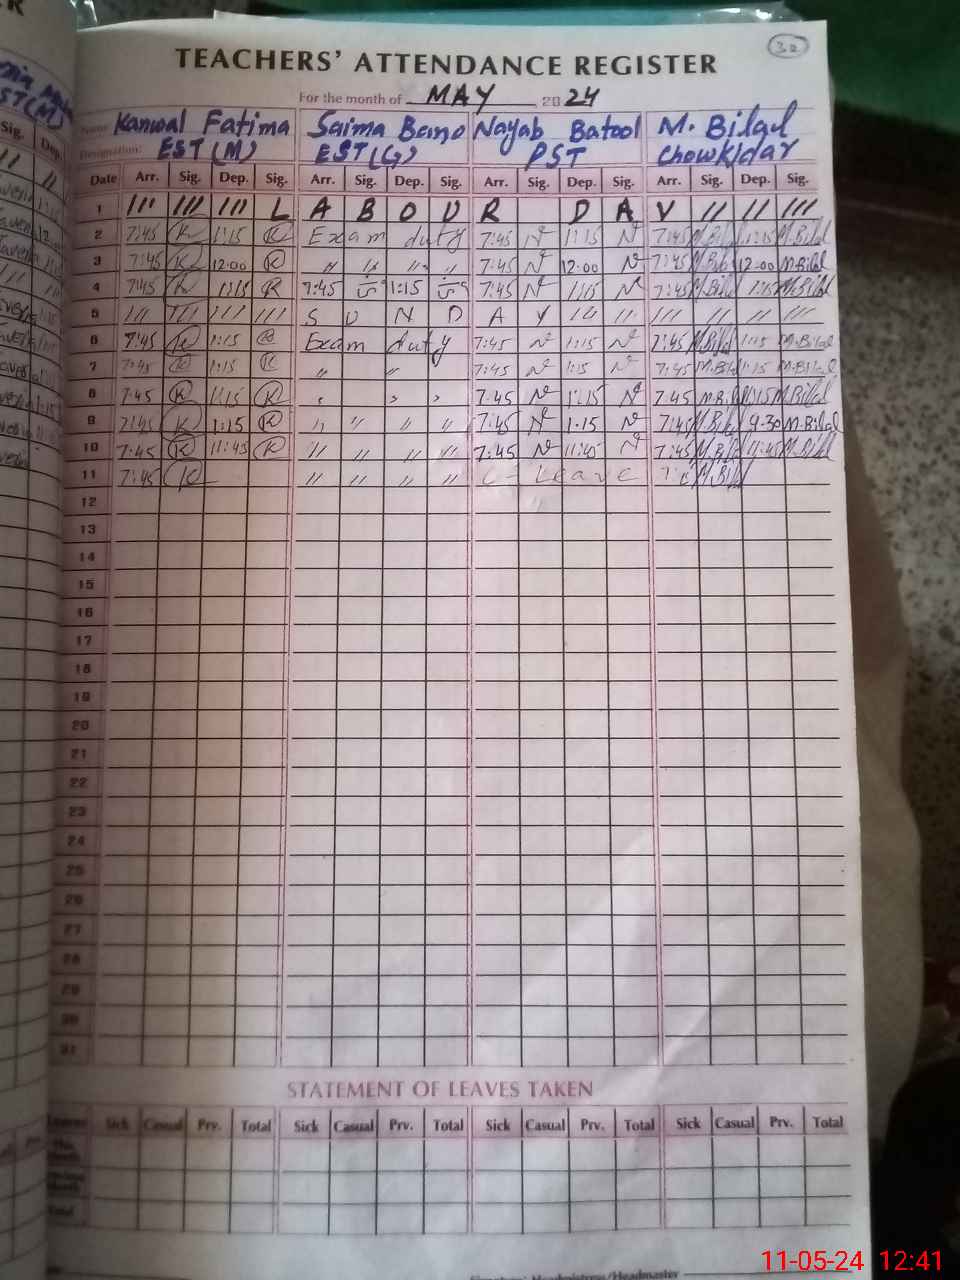 30
TEACHERS' ATTENDANCE REGISTER
For the month of MAY 2024
Name Kanwal Fatima Saima Bano Nayab Batool M. Bilal
Designation: EST (M) EST (G) PST Chowkidar
Date Arr. Sig. Dep. Sig. Arr. Sig. Dep. Sig. Arr. Sig. Dep. Sig. Arr. Sig. Dep. Sig.
1 /// /// /// L A B O U R D A Y // // ///
2 7:45 K 1:15 K Exam duty 7:45 N 1:15 N 7:45 M.Bilal 1:15 M.Bilal
3 7:45 K 12:00 K // // // // 7:45 N 12:00 N 7:45 M.Bilal 12:00 M.Bilal
4 7:45 K 1:15 K 7:45 1:15 7:45 N 1:15 N 7:45 M.Bilal 1:15 M.Bilal
5 /// /// /// /// S U N D A Y // // /// // // ///
6 7:45 K 1:15 K Exam duty 7:45 N 1:15 N 7:45 M.Bilal 1:15 M.Bilal
7 7:45 K 1:15 K // // 7:45 N 1:15 N 7:45 M.Bilal 1:15 M.Bilal
8 7:45 K 1:15 K 7:45 N 1:15 N 7:45 M.Bilal 1:15 M.Bilal
9 7:45 K 1:15 K // // // // 7:45 N 1:15 N 7:45 M.Bilal 9:30 M.Bilal
10 7:45 K 11:45 K // // // // 7:45 N 11:45 N 7:45 M.Bilal 11:45 M.Bilal
11 7:45 K // // // // C - Leave M.Bilal
12
13
14
15
16
17
18
19
20
21
22
23
24
25
26
27
28
29
30
31
STATEMENT OF LEAVES TAKEN
Leaves Sick Casual Prv. Total Sick Casual Prv. Total Sick Casual Prv. Total Sick Casual Prv. Total
Total
Headmistress/Headmaster
11-05-24 12:41